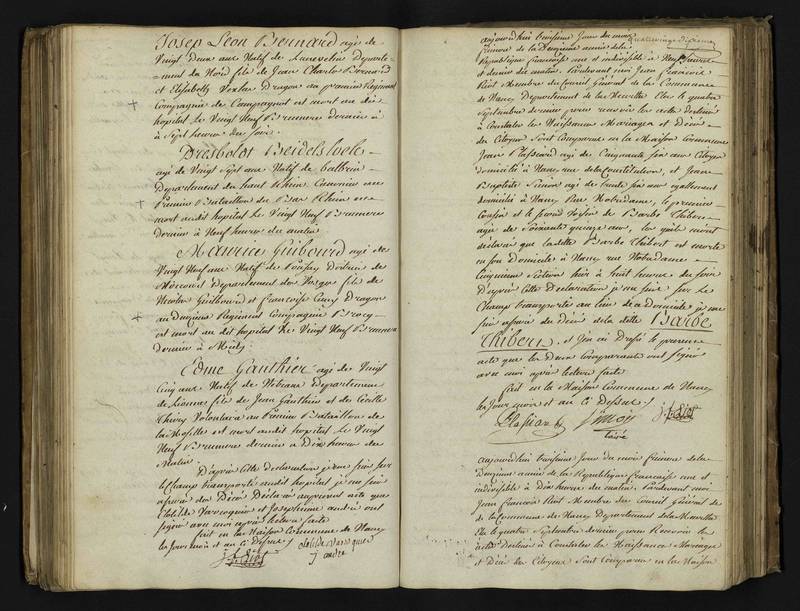 Josep Leon Bernard agé de
Vingt Deux ans Natif de Luneville Departe-
-ment du Nord fils de Jean Charles Bernard
et Elisabeth Dragon au premier Régiment
Compagnie de Campagnol est mort au dit
hopital Le Vingt Neuf Brumere dernier à
à Sept heures du soir
Presbolot Beidelsloele
agé de Vingt Sept ans Natif de
Departement du haut Rhein Canonier au
Premier Bataillon du Bas Rhein est
mort audit hopital le Vingt Neuf Brumere
dernier à Neuf heures du matin
Maurice Guibourd agé de
Vingt Neuf ans Natif de District de
Departement des Vosges fils de
Nicolas Guibourd et françoise Dragon
au Regiment Compagnie
est mort au dit hopital Le Vingt Neuf Brumere
dernier à Midy
Come Gauthier agé de Vingt
Cinq ans Natif de Departement
de fils de Jean Gauthier et de Cecille
Thiery Volontaire au Premier Bataillon de
la Moselle est mort audit hopital Le Vingt
Neuf Brumere dernier à Dix heures du
Matin
D'après Cette Declaration je me suis sur
le Champ transporté audit hopital je me suis
assuré des Décès Declarés au présent acte que
Clotilde Varroquier et Josephine andré ont
signé avec moi après lecture faite
fait en la Maison Commune de Nancy
les Jour mois et an ci Dessus
Clotilde Varoquier
j andré
aujourd'hui troisieme Jour du mois
frimere de la Deuxieme année de la
Republique francoise une et indivisible à Neuf heures
et demie du matin. Pardevant moi Jean francois
Membre du Conseil Général de la Commune
de Nancy Departement de la Meurthe Elu le quatre
Septembre dernier pour recevoir les actes destinés
à Constater les Naissances Mariages et Décès
des Citoyens Sont Comparus en la Maison Commune
Jean Plassiard agé de Cinquante six ans Citoyen
domicilié à Nancy rue de la Constitution, et Jean
Baptiste Simon agé de trente six ans egallement
domicilié à Nancy Rue Notredame, le premier
Cousin et le second Voisin de Barbe Thibert
agée de Soixante quinze ans, les quels m'ont
déclaré que ladite Barbe Thibert est morte
en son Domicile à Nancy rue Notredame
Cinquieme Section hier à huit heures du soir
D'après Cette Declaration je me suis sur Le
Champ transporté au lieu de ce domicile je me
suis assuré du Décès de la dette Barbe
Thibert, et j'en ai Dressé le présent
acte que les Deux Comparants ont signé
avec moi après lecture faite
fait en la Maison Commune de Nancy
les Jour mois et an ci Dessus
Plassiard Simon
aujourd'hui troisieme Jour du mois frimere de la
Deuxieme année de la Republique francoise une et
indivisible à Dix heures du matin. Pardevant moi
Jean francois Membre du Conseil Général de
de la Commune de Nancy Departement de la Meurthe
Elu le quatre Septembre dernier pour Recevoir les
actes Destinés à Constater les Naissances Mariages
et Décès des Citoyens Sont Comparus en la Maison